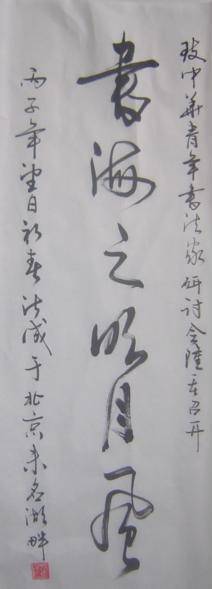 致中华青年书法家研讨会隆重召开
书海之明月风
丙子年望日初春法成于北京未名湖畔